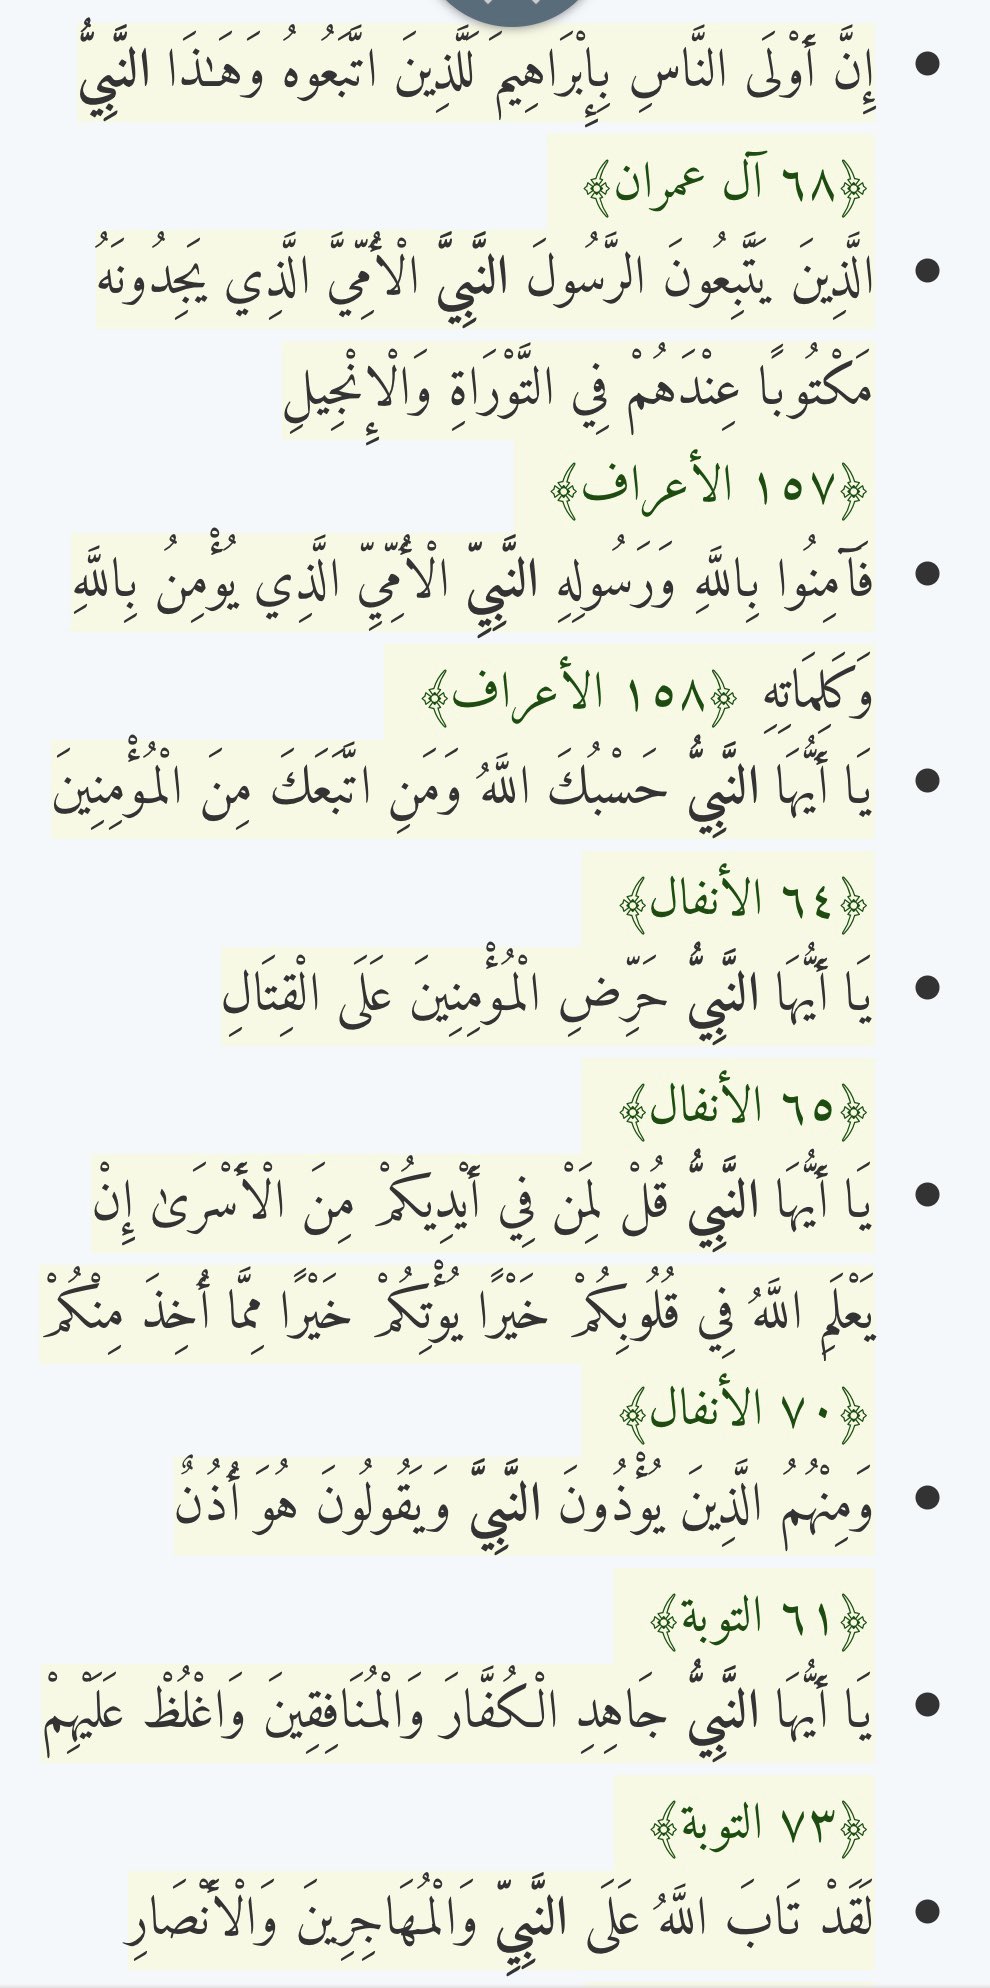 إِنَّ أَوْلَى النَّاسِ بِإِبْرَاهِيمَ لَلَّذِينَ اتَّبَعُوهُ وَهَـٰذَا النَّبِيُّ
﴿٦٨ آل عمران﴾
الَّذِينَ يَتَّبِعُونَ الرَّسُولَ النَّبِيَّ الْأُمِّيَّ الَّذِي يَجِدُونَهُ
مَكْتُوبًا عِنْدَهُمْ فِي التَّوْرَاةِ وَالْإِنْجِيلِ
﴿١٥٧ الأعراف﴾
فَآمِنُوا بِاللَّهِ وَرَسُولِهِ النَّبِيِّ الْأُمِّيِّ الَّذِي يُؤْمِنُ بِاللَّهِ
وَكَلِمَاتِهِ ﴿١٥٨ الأعراف﴾
يَا أَيُّهَا النَّبِيُّ حَسْبُكَ اللَّهُ وَمَنِ اتَّبَعَكَ مِنَ الْمُؤْمِنِينَ
﴿٦٤ الأنفال﴾
يَا أَيُّهَا النَّبِيُّ حَرِّضِ الْمُؤْمِنِينَ عَلَى الْقِتَالِ
﴿٦٥ الأنفال﴾
يَا أَيُّهَا النَّبِيُّ قُلْ لِمَنْ فِي أَيْدِيكُمْ مِنَ الْأَسْرَىٰ إِنْ
يَعْلَمِ اللَّهُ فِي قُلُوبِكُمْ خَيْرًا يُؤْتِكُمْ خَيْرًا مِمَّا أُخِذَ مِنْكُمْ
﴿٧٠ الأنفال﴾
وَمِنْهُمُ الَّذِينَ يُؤْذُونَ النَّبِيَّ وَيَقُولُونَ هُوَ أُذُنٌ
﴿٦١ التوبة﴾
يَا أَيُّهَا النَّبِيُّ جَاهِدِ الْكُفَّارَ وَالْمُنَافِقِينَ وَاغْلُظْ عَلَيْهِمْ
﴿٧٣ التوبة﴾
لَقَدْ تَابَ اللَّهُ عَلَى النَّبِيِّ وَالْمُهَاجِرِينَ وَالْأَنْصَارِ